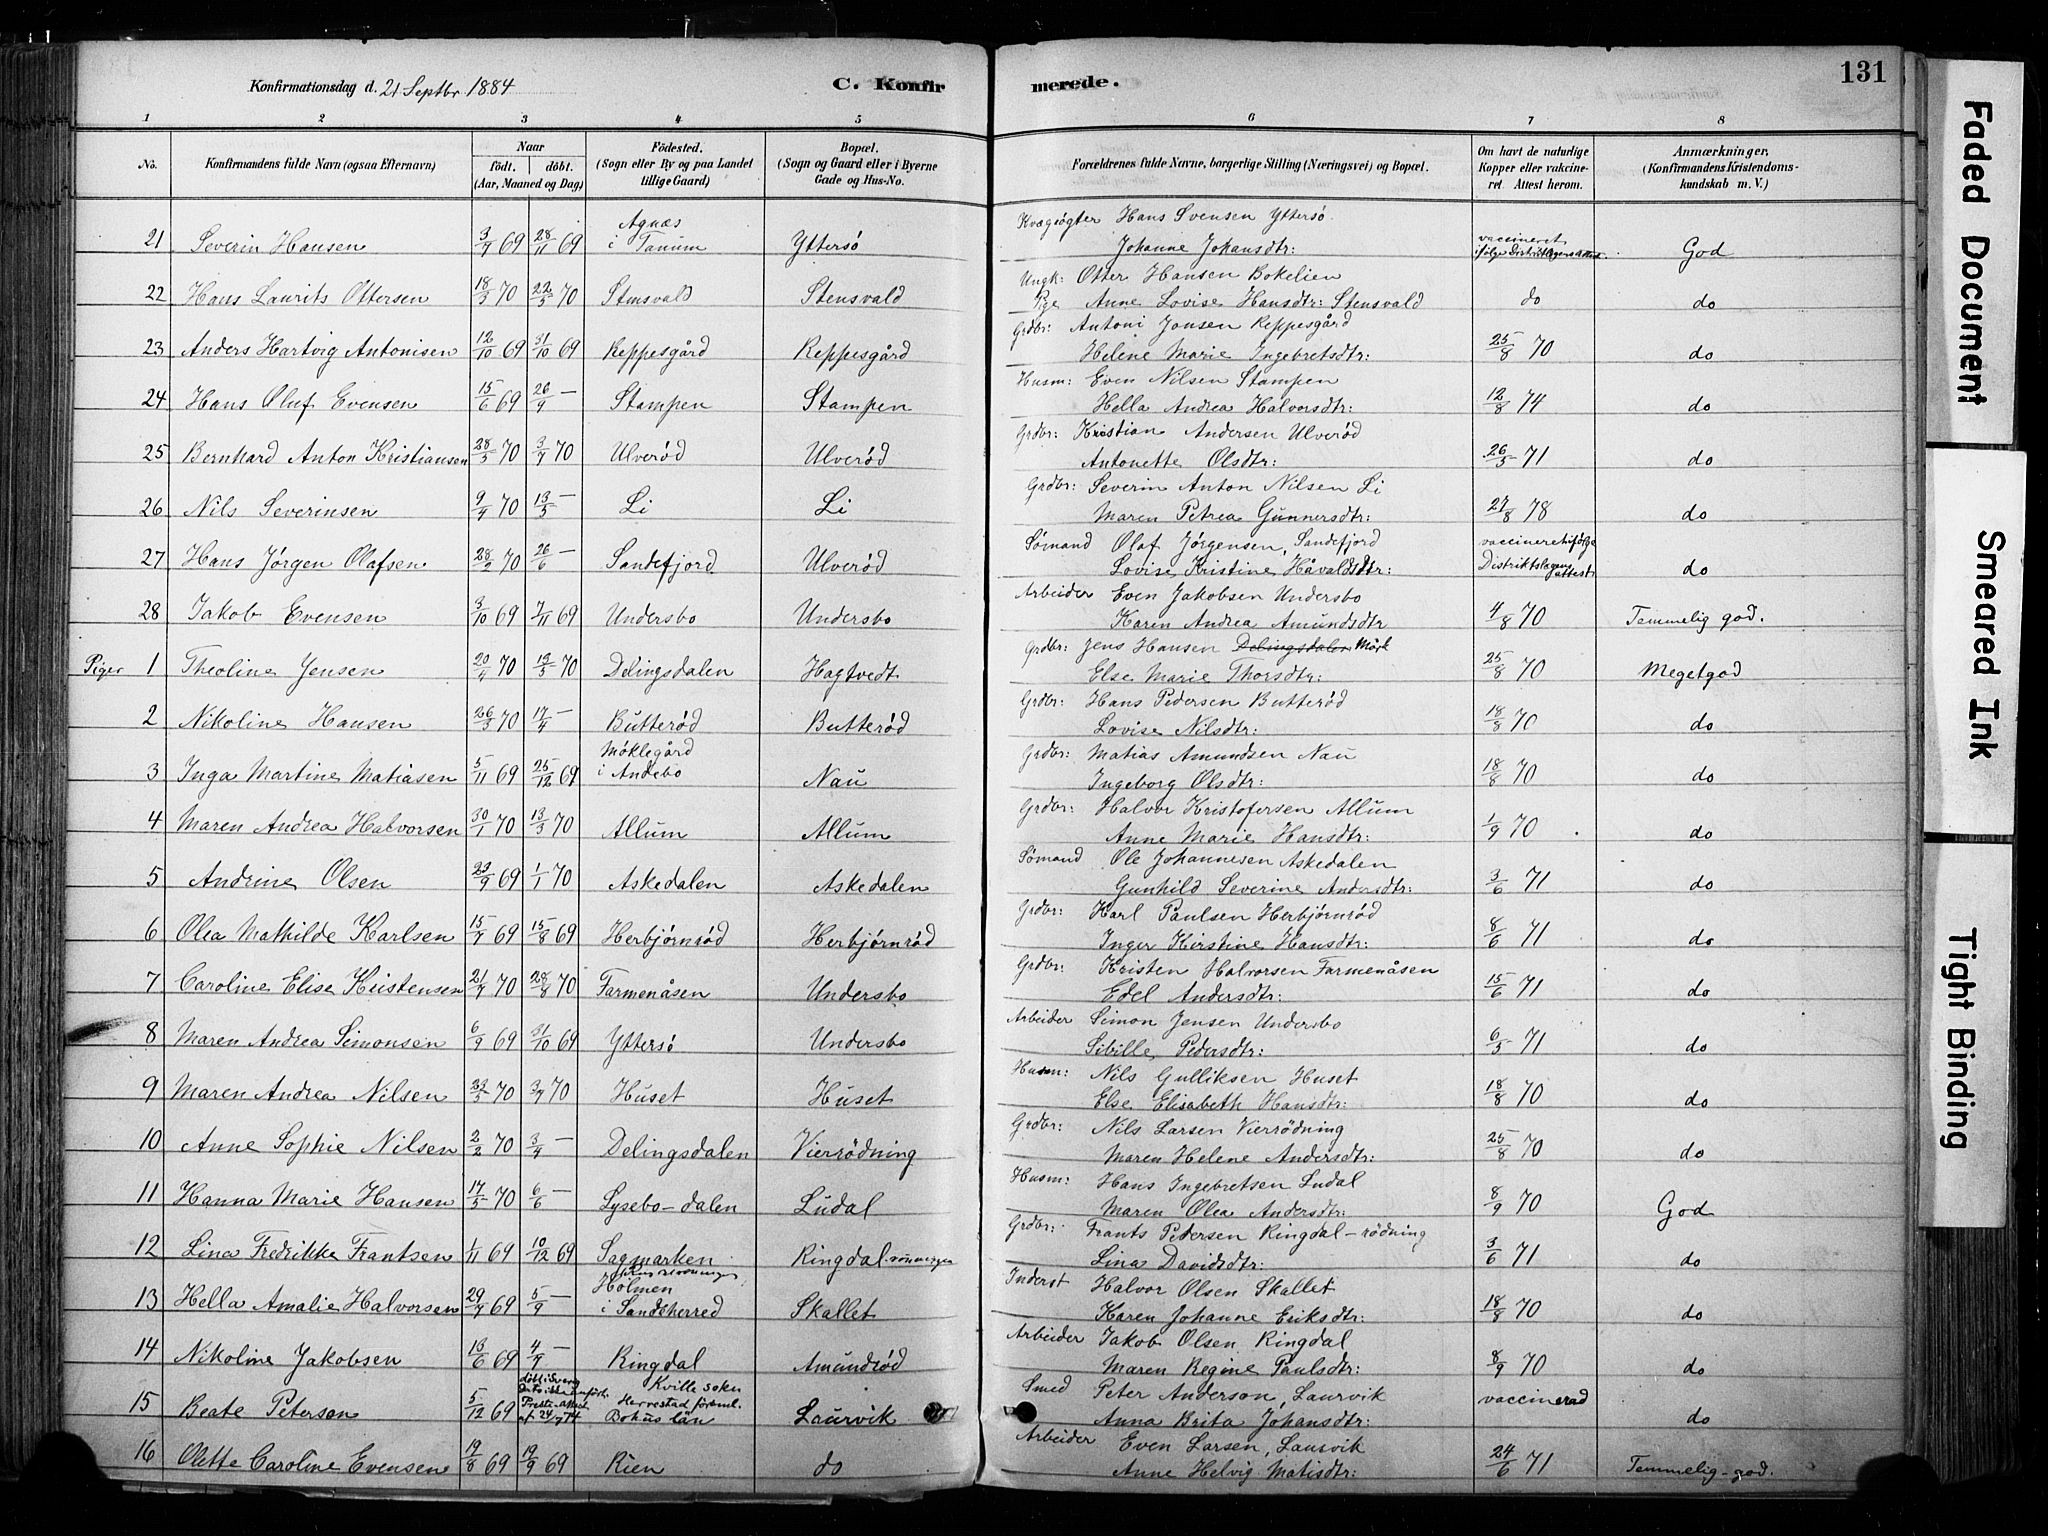 Konfirmationsdag d. 21 Septbr 1884
C. Konfirmerede.
131
1 2 3 4 5 6 7 8
No. Konfirmandens fulde Navn (ogsaa Efternavn) Naar født. døbt. (Aar, Maaned og Dag) Fødested. (Sogn eller By og paa Landet tillige Gaard) Bopæl. (Sogn og Gaard eller i Byerne Gade og Hus-No. Forældrenes fulde Navne, borgerlige Stilling (Næringsvei) og Bopæl. Om havt de naturlige Kopper eller vakcineret. Attest herom. Anmærkninger. (Konfirmandens Kristendomskundskab m. V.)
Agnæs Kvægrøgter Hans Svensen Yttersø
21 Severin Hansen 3/9 69 28/11 69 i Tanum Yttersø Johanne Johansdtr: vaccineret ifølge God
Ungk: Otter Hansen Bokelien
22 Hans Laurits Ottersen 18/3 70 22/5 70 Stensvald Stensvald Pge Anne Lovise Hansdtr: Stensvald do do
Grdbr: Antoni Jonsen Reppesgård
23 Anders Hartvig Antonisen 12/10 69 31/10 69 Reppesgård Reppesgård Helene Marie Ingebretsdtr: 25/8 70 do
Husm: Even Nilsen Stampen
24 Hans Oluf Evensen 15/6 69 26/9 — Stampen Stampen Hella Andrea Halvorsdtr: 12/8 74 do
Grdbr: Kristian Andersen Ulverød
25 Bernhard Anton Kristiansen 28/5 70 3/7 70 Ulverød Ulverød Antonette Olsdtr: 26/5 71 do
Grdbr: Severin Anton Nilsen Li
26 Nils Severinsen 9/4 70 13/5 — Li Li Maren Petrea Gunnersdtr: 27/8 78 do
Sømand Olaf Jørgensen, Sandefjord vaccineret ifølge
27 Hans Jørgen Olafsen 28/2 70 26/6 — Sandefjord Ulverød Lovise Kristine Håvaldsdtr: Distriktslægens attest do
Arbeider Even Jakobsen Undersbo
28 Jakob Evensen 3/10 69 7/11 69 Undersbo Undersbo Karen Andrea Amundsdtr 4/8 70 Temmelig god.
Grdbr: Jens Hansen Delingsdalen Mørk
Piger 1 Theoline Jensen 20/4 70 13/5 70 Delingsdalen Hagtvedt Else Marie Thorsdtr: 25/8 70 Megetgod
Grdbr: Hans Pedersen Butterød
2 Nikoline Hansen 26/3 70 17/4 — Butterød Butterød Lovise Nilsdtr: 18/8 70 do
Møklegård Grdbr: Matias Amundsen Nau
3 Inga Martine Matiasen 5/11 69 25/12 69 i Andebo Nau Ingeborg Olsdtr: 18/8 70 do
Grdbr: Halvor Kristofersen Allum
4 Maren Andrea Halvorsen 30/1 70 13/3 70 Allum Allum Anne Marie Hansdtr: 1/9 70 do
Sømand Ole Johannesen Askedalen
5 Andrine Olsen 23/9 69 1/1 70 Askedalen Askedalen Gunhild Severine Andersdtr: 3/6 71 do
Grdbr: Karl Paulsen Herbjørnrød
6 Olea Mathilde Karlsen 15/7 69 15/8 69 Herbjørnrød Herbjørnrød Inger Kirstine Hansdtr: 8/6 71 do
Grdbr: Kristen Halvorsen Farmenåsen
7 Caroline Elise Kristensen 21/7 70 28/8 70 Farmenåsen Undersbo Edel Andersdtr: 15/6 71 do
Arbeider Simon Jensen Undersbo
8 Maren Andrea Simonsen 6/9 69 31/10 69 Yttersø Undersbo Sibille Pedersdtr: 6/5 71 do
Husm: Nils Gulliksen Huset
9 Maren Andrea Nilsen 23/5 70 3/7 70 Huset Huset Else Elisabeth Hansdtr: 18/8 70 do
Grdbr: Nils Larsen Vierrödning
10 Anne Sophie Nilsen 2/2 70 3/4 — Delingsdalen Vierrödning Maren Helene Andersdtr: 25/8 70 do
Husm: Hans Ingebretsen Ludal
11 Hanna Marie Hansen 17/5 70 6/6 — Lysebo-dalen Ludal Maren Olea Andersdtr: 8/9 70 God
Grdbr: Frants Petersen Ringdal-rødning
12 Lina Fredrikke Frantsen 1/11 69 10/12 69 Sagmarken Ringdal Lina Davidsdtr: 3/6 71 do
Holmen Inderst Halvor Olsen Skallet
13 Hella Amalie Halvorsen 29/7 69 5/9 — i Sandeherred Skallet Karen Johanne Eriksdtr: 18/8 70 do
Arbeider Jakob Olsen Ringdal
14 Nikoline Jakobsen 13/6 69 4/9 — Ringdal Amundrød Maren Regine Paulsdtr: 8/9 70 do
Kville sokn Smed Peter Anderson, Laurvik vaccinerad
15 Beate Peterson 5/12 69 Bohus län Laurvik Anna Brita Johansdtr: do
Arbeider Even Larsen, Laurvik
16 Olette Caroline Evensen 19/8 69 19/9 69 Rien do Anne Helvig Matisdtr: 24/6 71 Temmelig-god.
Faded Document
Smeared Ink
Tight Binding